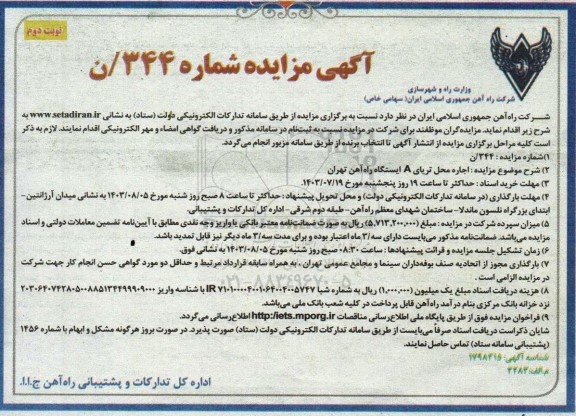 نوبت دوم
آگهی مزایده شماره ۳۴۴/ن
وزارت راه و شهرسازی
شرکت راه آهن جمهوری اسلامی ایران (سهامی خاص)
شرکت راه‌آهن جمهوری اسلامی ایران در نظر دارد نسبت به برگزاری مزایده از طریق سامانه تدارکات الکترونیکی دولت (ستاد) به نشانی www.setadiran.ir به
شرح زیر اقدام نماید. مزایده‌گران موظفند برای شرکت در مزایده نسبت به ثبت‌نام در سامانه مذکور و دریافت گواهی امضاء و مهر الکترونیکی اقدام نمایند. لازم به ذکر
است کلیه مراحل برگزاری مزایده از انتشار آگهی تا انتخاب برنده از طریق سامانه مزبور انجام می‌گردد.
۱) شماره مزایده: ۳۴۴/ن
۲) شرح موضوع مزایده: اجاره محل تریای A ایستگاه راه‌آهن تهران
۳) مهلت خرید اسناد: حداکثر تا ساعت ۱۹ روز پنجشنبه مورخ ۱۴۰۳/۰۷/۱۹
۴) مهلت بارگذاری (در سامانه تدارکات الکترونیکی دولت) و محل تحویل پیشنهاد: حداکثر تا ساعت ۸ صبح روز شنبه مورخ ۱۴۰۳/۰۸/۰۵ به نشانی میدان آرژانتین-
ابتدای بزرگراه نلسون ماندلا- ساختمان شهدای معظم راه‌آهن- طبقه دوم شرقی- اداره کل تدارکات و پشتیبانی.
۵) میزان سپرده شرکت در مزایده: مبلغ (۵,۷۱۳,۲۰۰,۰۰۰) ریال به صورت ضمانت‌نامه معتبر بانکی یا واریز وجه نقدی مطابق با آیین‌نامه تضمین معاملات دولتی و اسناد
مزایده می‌باشد. ضمانت‌نامه مذکور می‌بایست دارای سه/۳ ماه اعتبار بوده و برای مدت سه/۳ ماه دیگر نیز قابل تمدید باشد.
۶) زمان تشکیل جلسه مزایده و قرائت پیشنهادها: ساعت ۰۸:۳۰ صبح روز شنبه مورخ ۱۴۰۳/۰۸/۰۵ به نشانی فوق.
۷) بارگذاری مجوز از اتحادیه صنف بوفه‌داران سینما و مجامع عمومی تهران، به همراه سابقه قرارداد مرتبط و حداقل دو مورد گواهی حسن انجام کار جهت شرکت
در مزایده الزامی است.
۸) هزینه دریافت اسناد مبلغ یک میلیون (۱,۰۰۰,۰۰۰) ریال به شماره شبا IR با شناسه واریز
نزد خزانه بانک مرکزی بنام درآمد راه‌آهن قابل پرداخت در کلیه شعب بانک ملی می‌باشد.
۹) فراخوان مزایده فوق از طریق پایگاه ملی اطلاع‌رسانی مناقصات http:/iets.mporg.ir اطلاع‌رسانی می‌گردد.
شایان ذکراست دریافت اسناد صرفاً می‌بایست از طریق سامانه تدارکات الکترونیکی دولت (ستاد) صورت پذیرد. در صورت بروز هرگونه مشکل و ابهام با شماره ۱۴۵۶
(پشتیبانی سامانه ستاد) تماس حاصل نمایند.
شناسه آگهی: ۱۷۹۸۲۱۵
م.الف: ۲۲۸۳
اداره کل تدارکات و پشتیبانی راه‌آهن ج.ا.ا.